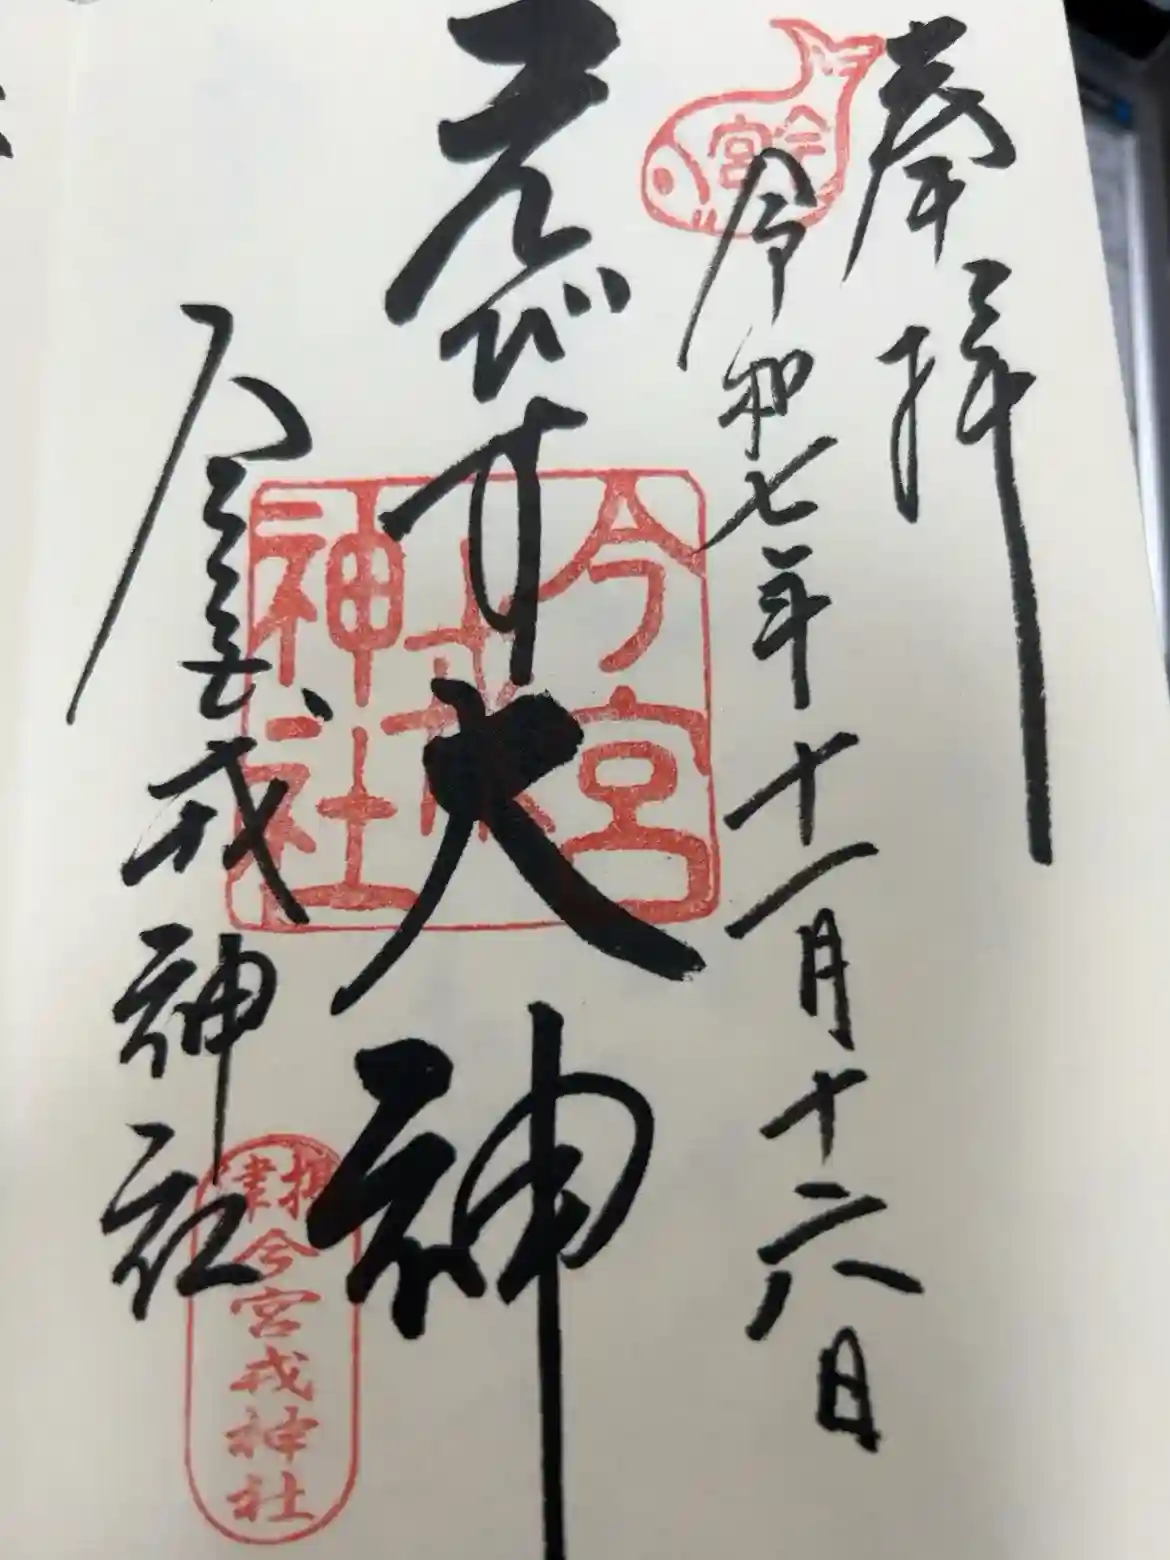 奉拝
今宮
令和七年十一月十六日
えびす大神
今宮
戎
神社
戎神社
今宮戎神社